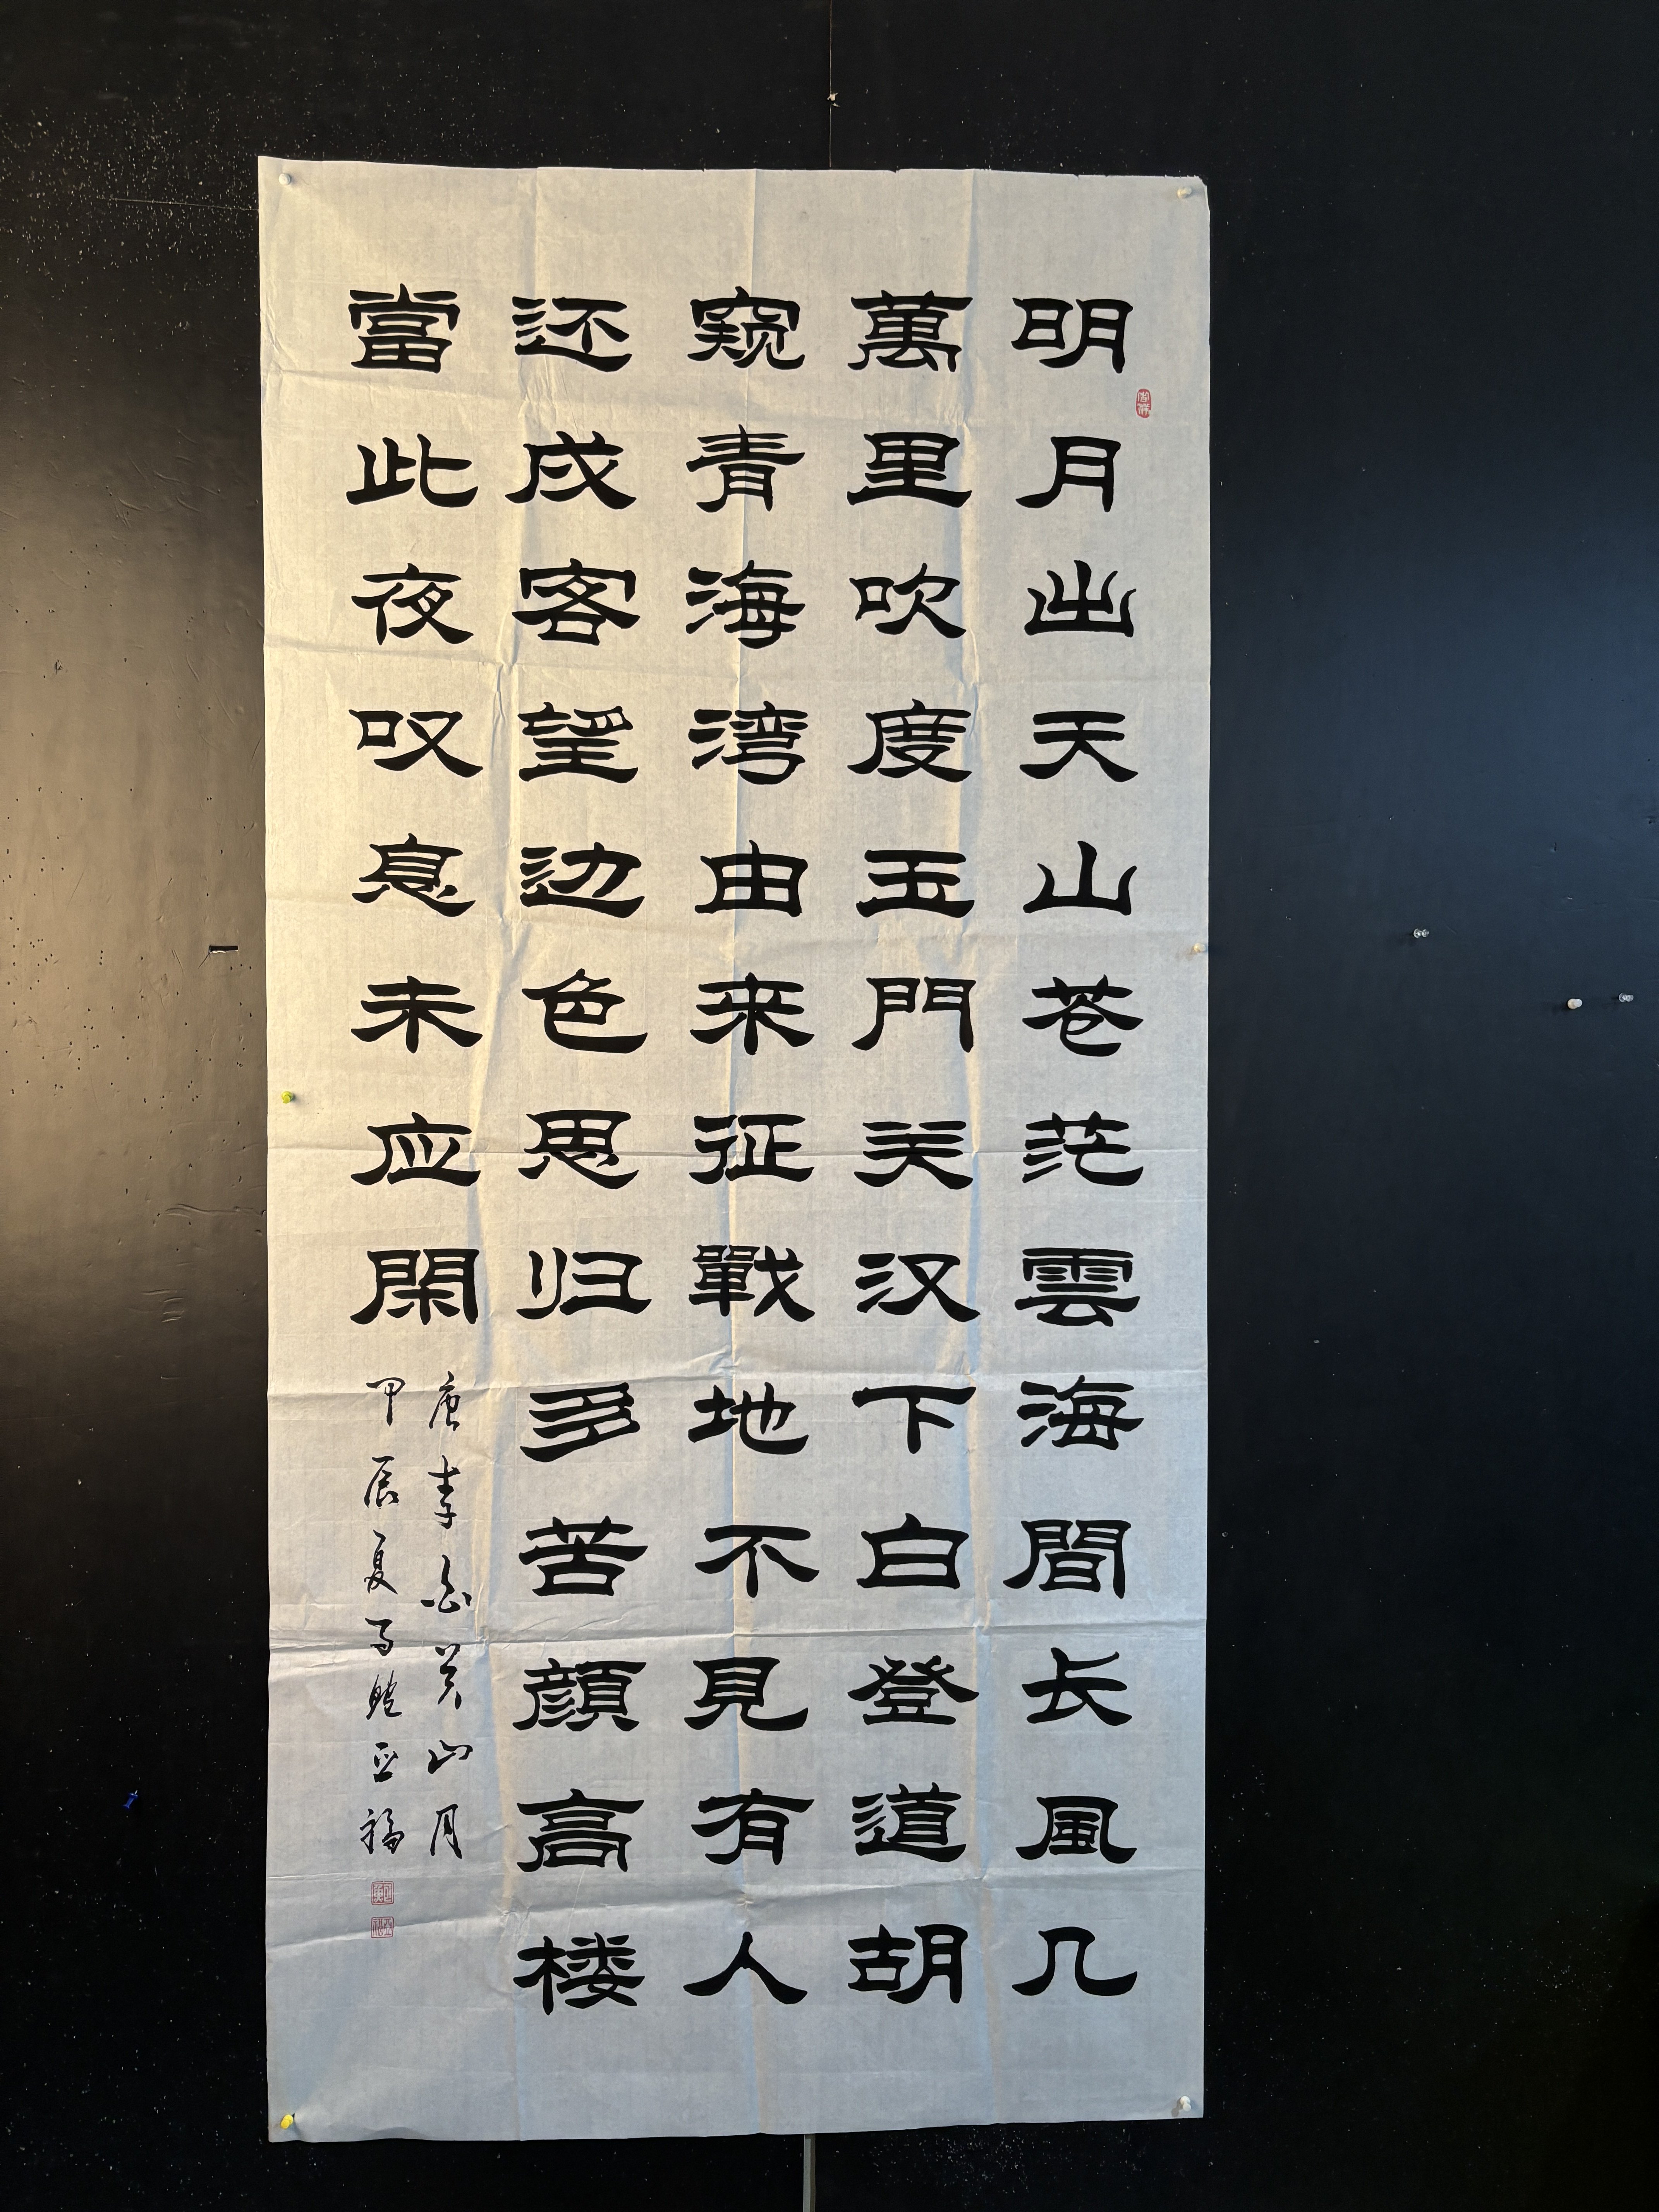 明月出天山苍茫雲海間长風几
萬里吹度玉門关汉下白登道胡
窥青海湾由来征戰地不見有人
还戍客望边色思归多苦顔高楼
當此夜叹息未应閑
唐李白关山月
甲辰夏马艳亚福